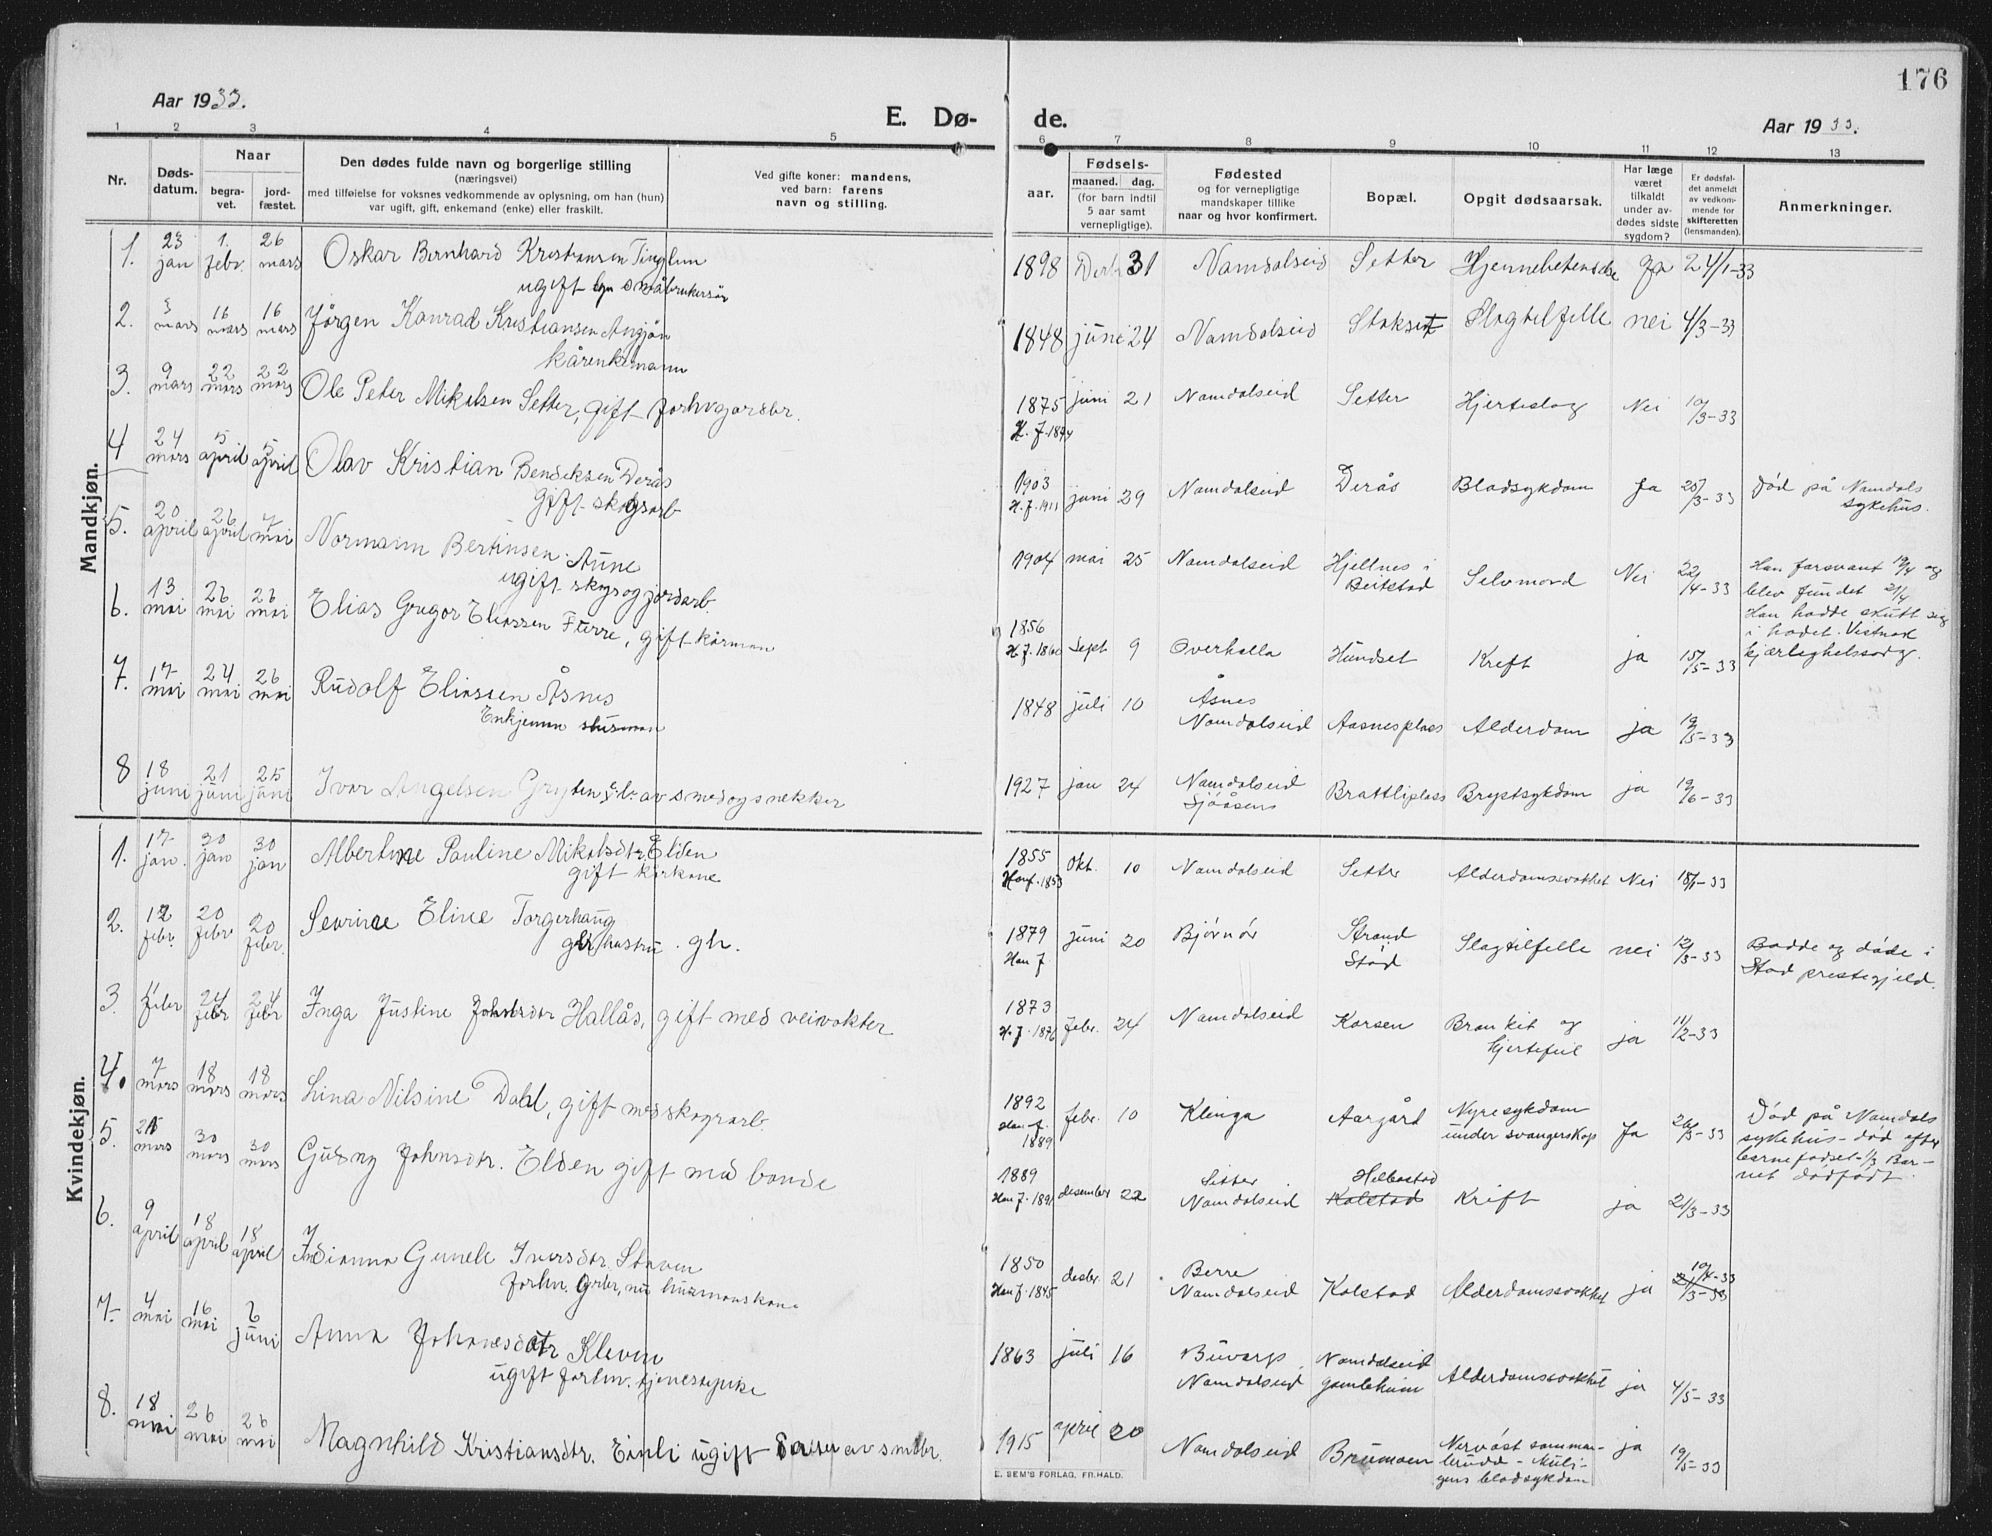 176
Aar 1933.
E. Dø-
de.
Aar 1933.
1 2 3 4 5 6 7 8 9 10 11 12 13
Nr.
Døds-
datum.
Naar
begra-
vet.
jord-
fæstet.
Den dødes fulde navn og borgerlige stilling
(næringsvei)
med tilføielse for voksnes vedkommende av oplysning, om han (hun)
var ugift, gift, enkemand (enke) eller fraskilt.
Ved gifte koner: mandens,
ved barn: farens
navn og stilling.
aar.
Fødsels-
maaned. dag.
(for barn indtil
5 aar samt
vernepligtige).
Fødested
og for vernepligtige
mandskaper tillike
naar og hvor konfirmert.
Bopæl.
Opgit dødsaarsak.
Har læge
været
tilkaldt
under av-
dødes sidste
sygdom?
Er dødsfal-
det anmeldt
av vedkom-
mende for
skifteretten
(lensmanden).
Anmerkninger.
Mandkjøn.
1. 23 jan 1. febr. 26 mars Oskar Bernhard Kristiansen Tinglum
ugift småbrukersøn
1898 31 Namdalseid Setter Hjernebetendelse Ja 24/1-33
2. 3 mars 16 mars 16 mars Jørgen Konrad Kristiansen
kårenkemann
1848 juni 24 Namdalseid Slagtilfelle nei 4/3-33
3. 9 mars 22 mars 22 mars Ole Peter Mikalsen Setter, gift forhv gardbr.
1875 juni 21 Namdalseid Setter Hjerteslag Nei 10/3-33
4 24 mars 5 april 5 april Olav Kristian Bendiksen Derås
gift skogsarb
1903 H.f. 1911 juni 29 Namdalseid Derås Blodsykdom Ja 25/3-33 Død på Namdals
sykehus.
5. 20 april 26 april 7 mai Normann Bertinsen Aune
ugift skogs og jordarb.
1904 mai 25 Namdalseid Hjellnes i
Beitstad Selvmord Nei 22/4-33 Han forsvant 19/4 og
blev fundet 21/4
Han hadde skutt seg
i hodet. Vistnok
kjærlighetssorg.
6. 13 mai 26 mai 26 mai Elias Gregor Eliassen Furre, gift kårman
1856 sept 9 Overhalla Hundset Kreft ja 15/5-33
7. 17 mai 24 mai 26 mai Rudolf Eliassen Åsnes
Enkjemann husman
1848 juli 10 Åsnes
Namdalseid Aasnesplass Alderdom ja 19/5-33
8 18 juni 21 juni 25 juni Ivar Angelsen Gryten g.b. av smed og snekker
1927 jan 24 Namdalseid
Sjøåsen Brattliplass Brystsykdom ja 19/6-33
Kvindekjøn.
1. 17 jan. 30 jan 30 jan Albertine Pauline Mikalsdtr. Elden
gift kårkone
1855 Han f. 1853 okt. 10 Namdalseid Setter Alderdomssvakhet Nei 18/1-33
2. 12 febr. 20 febr 20 febr. Sevrine Eline Torgerhaug
hustru. gh.
1879 Han f juni 20 Bjørnør Strand
Stod Slagtilfelle nei 12/3-33 Bodde og døde i
Stod prestegjeld.
3. febr 24 febr 24 febr Inga Justine Johnsdtr Hallås, gift med veivokter
1873 H.f. 1876 febr. 24 Namdalseid Korsen Bronkit og
hjertefeil ja 11/2-33
4. 7 mars 18 mars 18 mars Lina Nilsine Dahl, gift med skogsarb.
1892 Han f. 1889 febr. 10 Klinga Aargård Nyresykdom
under svangerskap Ja 26/3-33 Død på Namdals
sykehus - død efter
barnefødsel 1/3 Bar-
net dødfødt.
5. 21 mars 30 mars 30 mars Gudny Johnsdtr. Elden gift med bonde
1889 Han f. 1891 desember 22 Sitter
Namdalseid Helbostad
Kolstad Kreft ja 21/3-33
6. 9 april 18 april 18 april Indianna Gunele Iversdtr. Staven
forhv. nu husmanskone
1850 Han f. 1845 desbr. 21 Berre
Namdalseid Kolstad Alderdomssvakhet ja 10/4-33
7. 4 mai 16 mai 6 juni Anna Johanesdtr Kleven
ugift forhv. tjenestepike
1863 juli 16 Buvarp
Namdalseid Namdalseid
gamleheim Alderdomssvakhet ja 4/5-33
8. 18 mai 26 mai 26 mai Magnhild Kristiansdtr. Einli ugift datter av småbr.
1915 april 20 Namdalseid Brumoen Nervøst samman-
brudd - Muli-
gens blodsykdom ja 19/5-33
E. SEM'S FORLAG, FR.HALD.